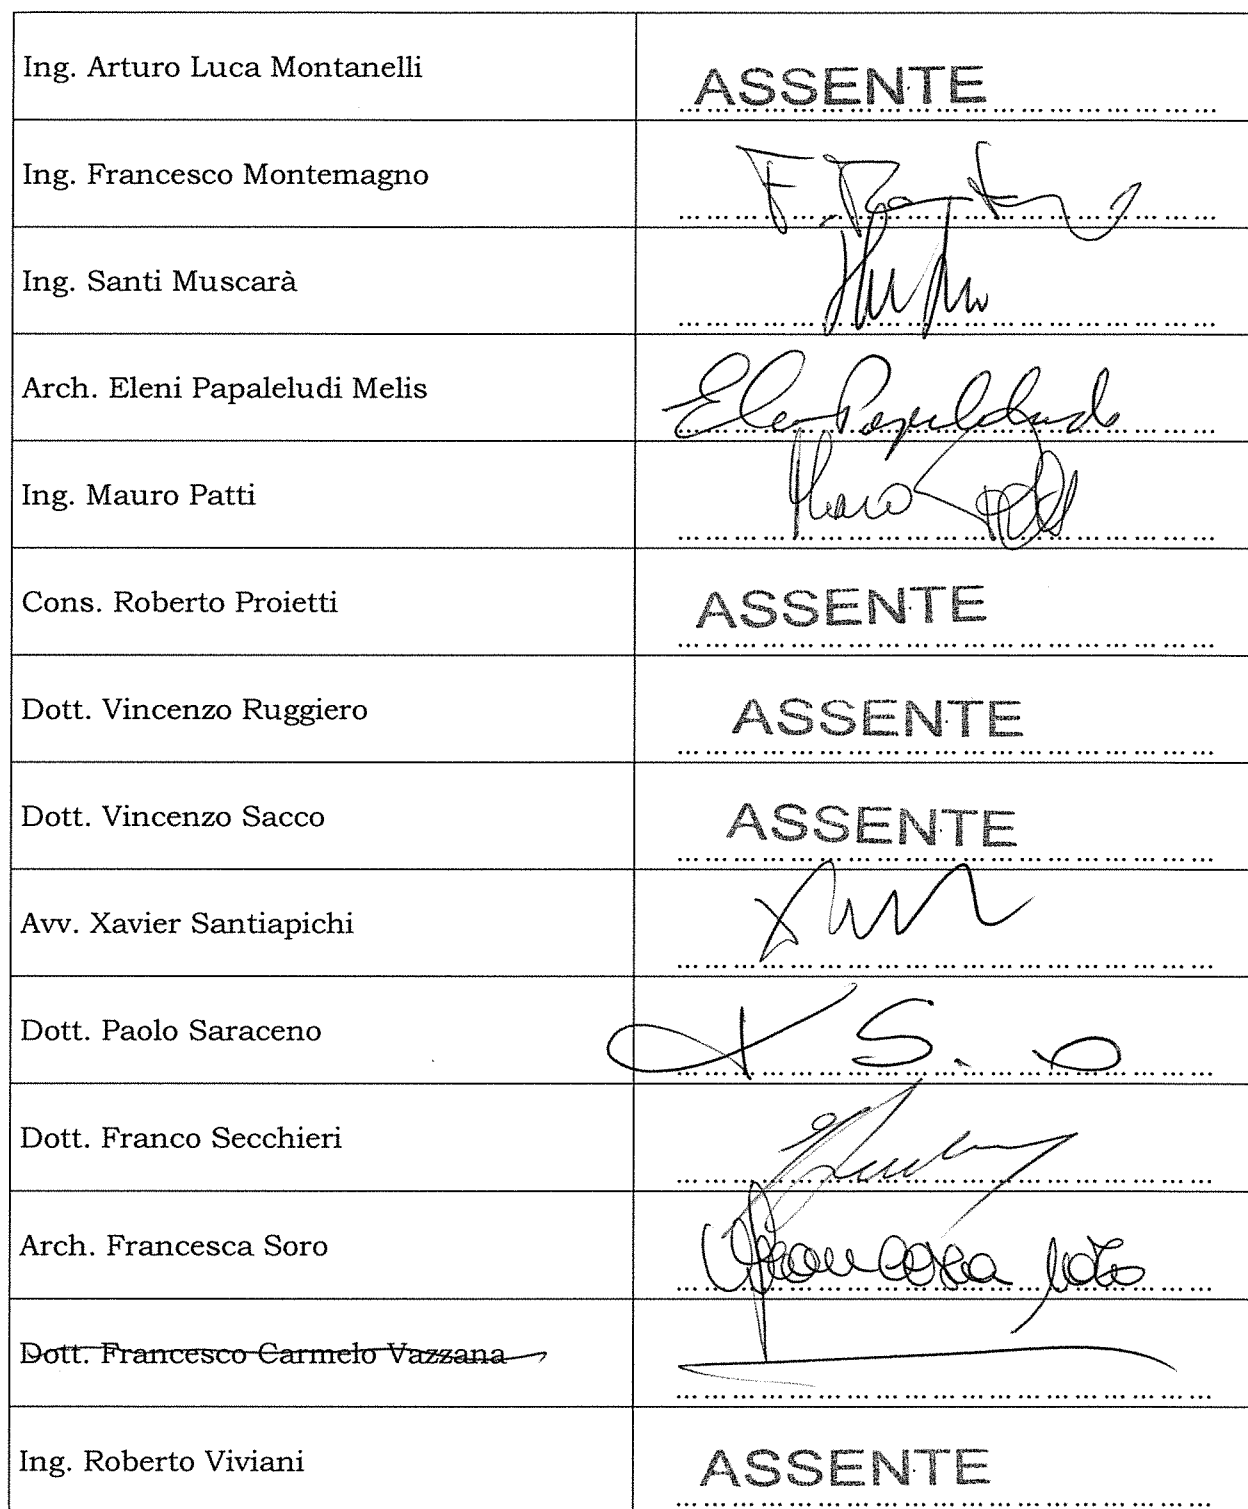 Ing. Arturo Luca Montanelli ASSENTE
Ing. Francesco Montemagno
Ing. Santi Muscarà
Arch. Eleni Papaleludi Melis
Ing. Mauro Patti
Cons. Roberto Proietti ASSENTE
Dott. Vincenzo Ruggiero ASSENTE
Dott. Vincenzo Sacco ASSENTE
Avv. Xavier Santiapichi
Dott. Paolo Saraceno
Dott. Franco Secchieri
Arch. Francesca Soro Francesca Soro
Dott. Francesco Carmelo Vazzana
Ing. Roberto Viviani ASSENTE